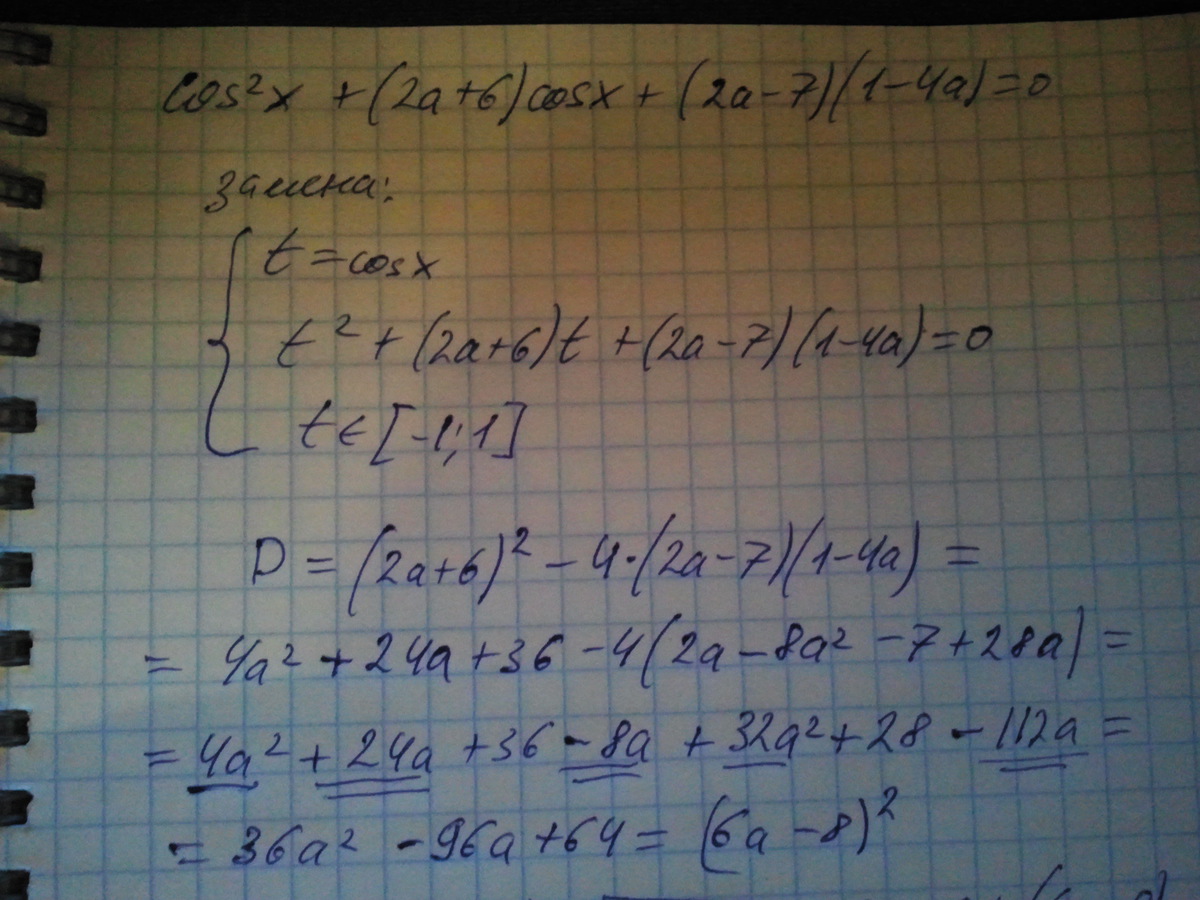 cos²x + (2a+6)cosx + (2a-7)(1-4a)=0
замена:
t=cosx
t² + (2a+6)t + (2a-7)(1-4a)=0
t∈[-1;1]
D = (2a+6)² - 4·(2a-7)(1-4a) =
= 4a² + 24a + 36 - 4(2a - 8a² - 7 + 28a) =
= 4a² + 24a + 36 - 8a + 32a² + 28 - 112a =
= 36a² - 96a + 64 = (6a - 8)²